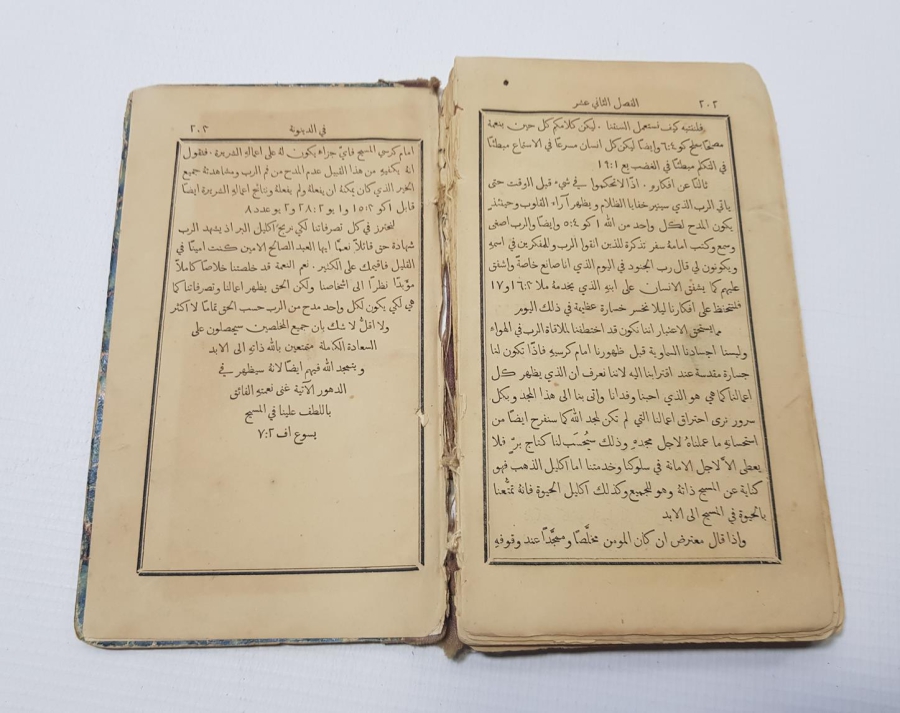 ٢٠٢ الفصل الثاني عشر
فلننتبه كيف نستعمل السنتنا . ليكن كلامكم كل حين بنعمة
مصلحًا بملح كو ٤:٦ وايضًا ليكن كل انسان مسرعًا في الاستماع مبطئًا
في التكلم مبطئًا في الغضب يع ١:١٩
ثالثًا عن افكاره . اذًا لا تحكموا في شيء قبل الوقت حتى
ياتي الرب الذي سينير خفايا الظلام ويظهر آراء القلوب وحينئذٍ
يكون المدح لكل واحد من الله ١كو ٤:٥ وايضًا والرب اصغى
وسمع وكتب امامهٔ سفر تذكرة للذين اتقوا الرب وللمفكرين في اسمهِ
ويكونون لي قال رب الجنود في اليوم الذي انا صانع خاصةً واشفق
عليهم كما يشفق الانسان على ابنهِ الذي يخدمهٔ ملا ٣:١٦ و١٧
فلنتحفظ على افكارنا ليلا نخسر خسارة عظيمة في ذلك اليوم
مما يستحق الاعتبار اننا نكون قد اختطفنا لملاقاة الرب في الهواء
ولبسنا اجسادنا السماوية قبل ظهورنا امام كرسيهِ فاذًا تكون لنا
جسارة مقدسة عند اقترابنا اليه لاننا نعرف ان الذي يظهر كل
اعمالنا كما هي هو الذي احبنا وفدانا واتى بنا الى هذا المجد وبكل
سرور نرى احتراق اعمالنا التي لم تكن لمجد الله كما سنفرح ايضًا من
استحسانهِ ما عملناهُ لاجل مجدهِ وذلك سيُحسَب لنا كتاج برّ فلا
يعطى الَّا لاجل الامانة في سلوكنا وخدمتنا اما اكليل الذهب فهو
كناية عن المسيح ذاتهٔ وهو للجميع وكذلك اكليل الحيوة فانهُ تمتُّعنا
بالحيوة في المسيح الى الابد
واذا قال معترض ان كان المومن مخلَّصًا وممجَّدًا عند وقوفهِ
في الدينونة ٢٠٣
امام كرسي المسيح فاي جزاء يكون لهُ على اعمالهِ الشريرة . فنقول
انهُ يكفيهِ من هذا القبيل عدم المدح من فم الرب ومشاهدتهُ جميع
الخير الذي كان يمكنهُ ان يفعلهُ ولم يفعلهُ ونتائج اعمالهِ الشريرة ايضًا
قابل ١كو ٣:١٥ و١ يو ٢:٢٨ و٢ يو عدد ٨
لنحترز في كل تصرفاتنا لكي نربح اكليل البر اذ يشهد الرب
شهادة حق قائلًا نعمًّا ايها العبد الصالح الامين كنت امينًا في
القليل فاقيمك على الكثير . نعم النعمة قد خلصتنا خلاصًا كاملًا
مؤبدًا نظرًا الى اشخاصنا ولكن الحق يظهر اعمالنا وتصرفاتنا كما
هي لكي يكون لكل واحد مدح من الرب حسب الحق تمامًا لا اكثر
ولا اقلَّ لا شك بان جميع المخلصين سيحصلون على
السعادة الكاملة متمتعين بالله ذاتهِ الى الابد
ويتمجد الله فيهم ايضًا لانهُ سيظهر في
الدهور الآتية غنى نعمتهِ الفائق
باللطف علينا في المسيح
يسوع اف ٢:٧